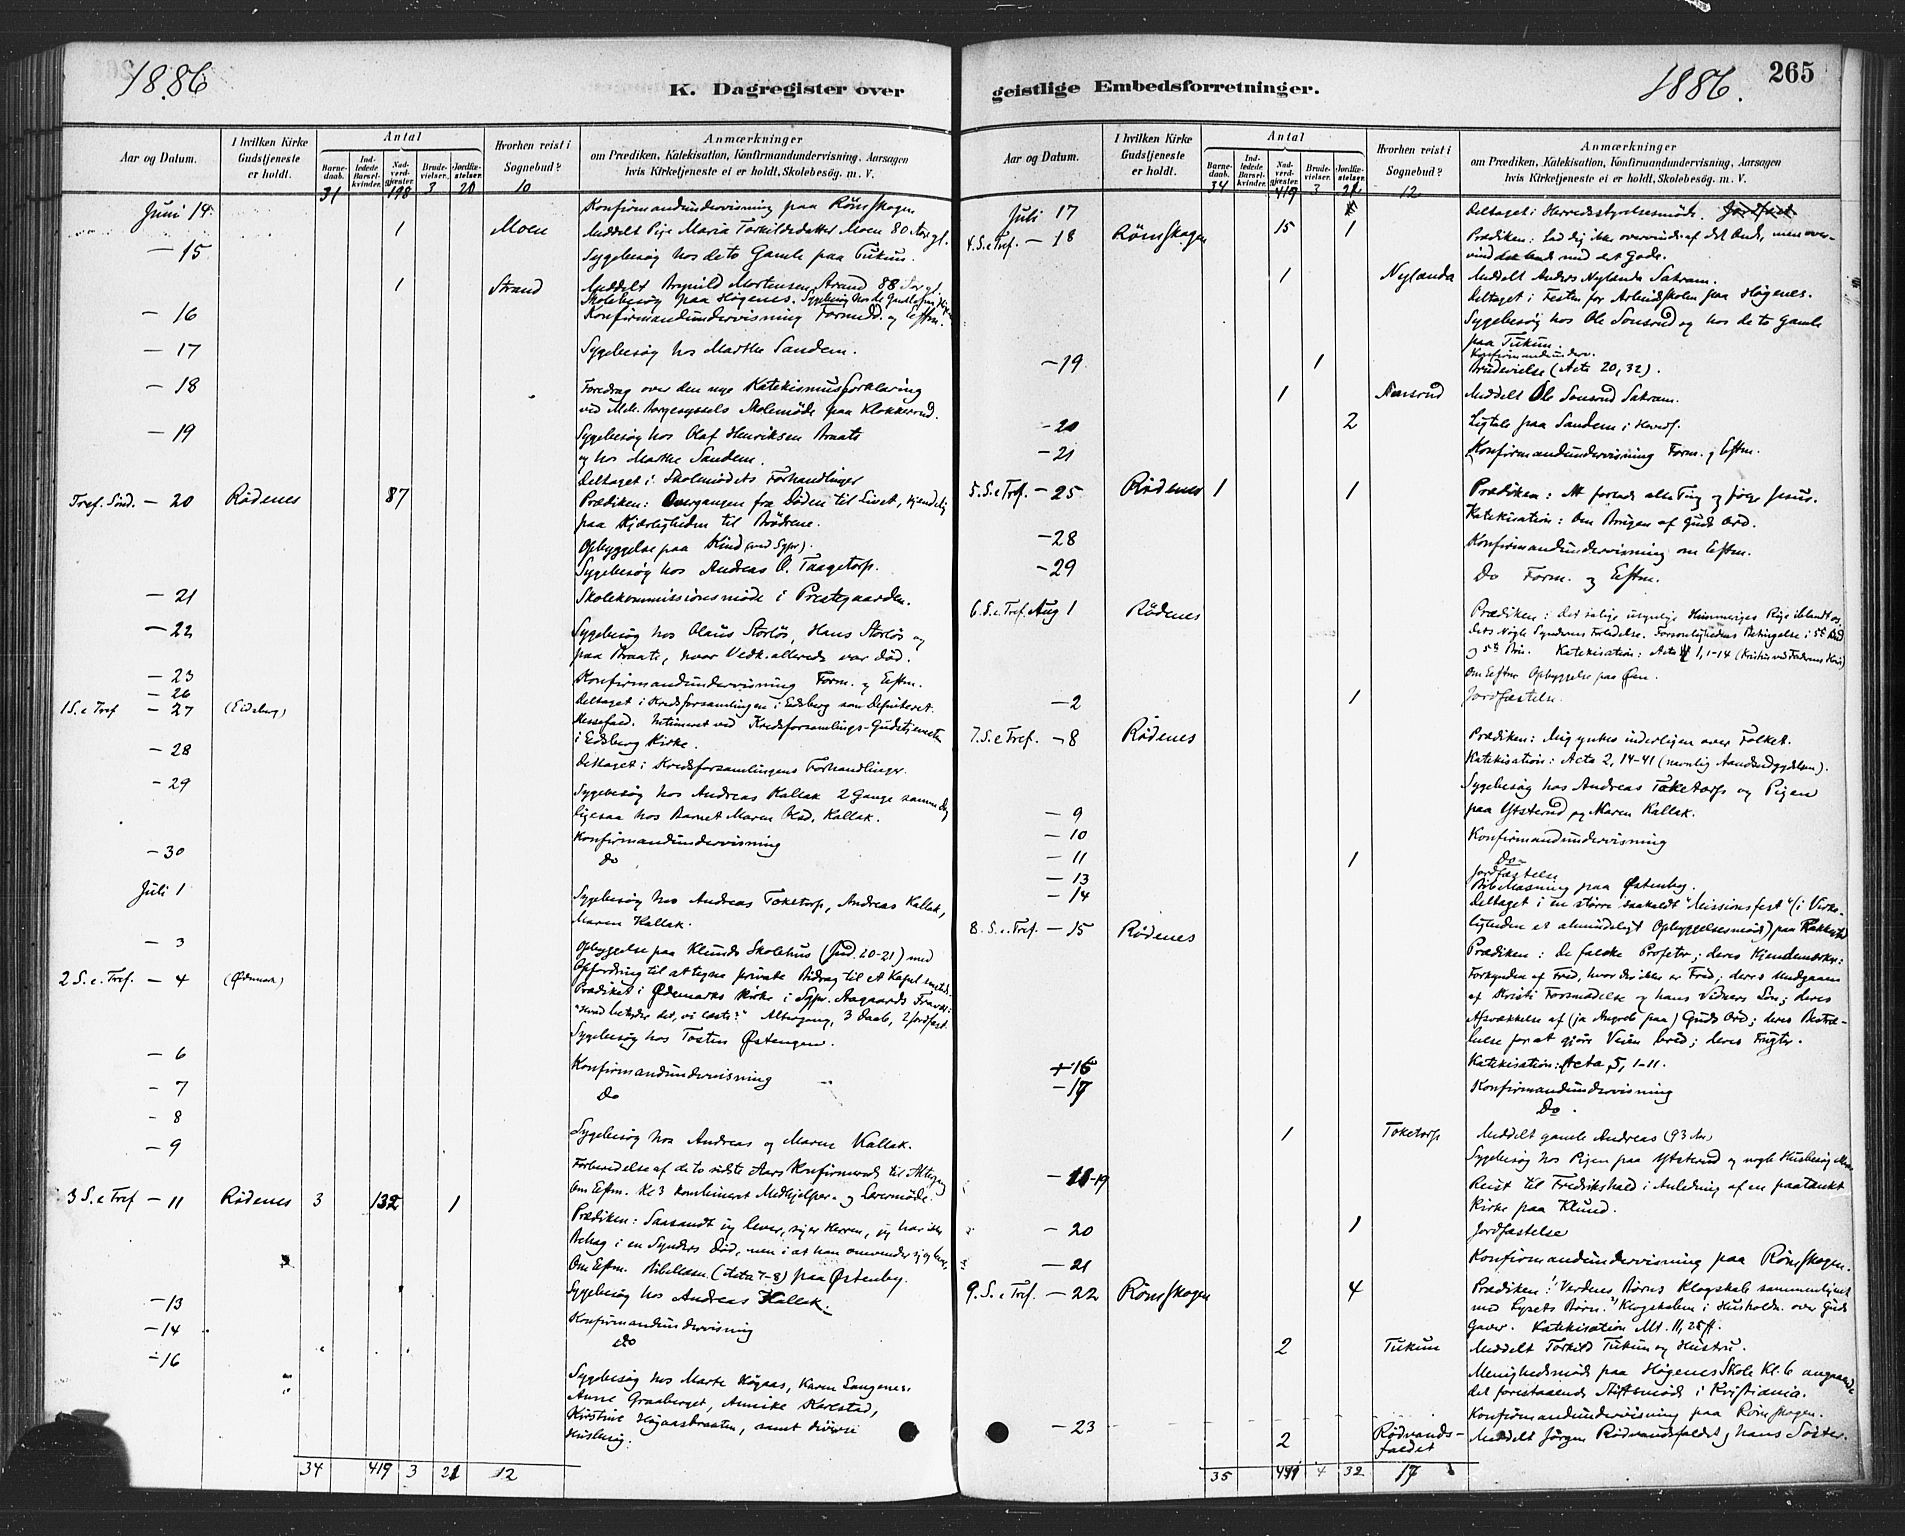 1886
K. Dagregister over
Aar og Datum.
I hvilken Kirke Gudstjeneste er holdt.
Antal
Barne-daab.
Ind-ledede Barsel-kvinder.
Nad-verd-gjester.
Brude-vielser.
Jordfæ-stelser.
Hvorhen reist i Sognebud?
Anmærkninger
om Prædiken, Katekisation, Konfirmandundervisning, Aarsagen
hvis Kirketjeneste ei er holdt, Skolebesøg. m. V.
31 198 3 20 10
Juni 14. Konfirmandundervisning paa Rømskogen
1 Moen Meddelt Pige Maria Torkildsdatter Moen 80 Aar gl.
— 15 Sygebesøg hos de to Gamle paa Tukun.
1 Strand Meddelt Mortensen Strand 88 Aar gl.
Skolebesøg paa Høgenes.
— 16 Konfirmandundervisning Formd. og Eftm.
— 17 Sygebesøg hos Marthe Sandem.
— 18 Foredrag over den nye Katekismusforklaring
ved Mdl. Borgesyssels Skolemøde paa Klokkerud.
— 19 Sygebesøg hos Olaf Henriksen Braate
og hos Marthe Sandem.
Deltaget i Skolemødets Forhandlinger
Tref. Sønd. — 20 Rødenes 87 Prædiken: Overgangen fra Døden til Livet, kjendelig
paa Kjærligheden til Brødrene.
Opbyggelse paa Kind (ved Sygs).
Sygebesøg hos Andreas O. Taagetorp.
— 21 Skolekommissionsmøde i Prestegaarden.
— 22 Sygebesøg hos Olaus Storløs, Hans Storløs og
paa Braate, hvor Vedk. allerede var død.
— 23 Konfirmandundervisning Form. og Eftm.
— 26 Deltaget i Kredsforsamlingen i Eidsberg som Deputeret.
1 S. e Tref — 27 (Eidsberg) Messefald. ved Kredsforsamlings-Gudstjenesten
i Eidsberg Kirke.
— 28 Deltaget i Kredsforsamlingens Forhandlinger.
— 29 Sygebesøg hos Andreas Kallak 2 Gange samme Dag
ligesaa hos Barnet Maren Kallak.
Konfirmandundervisning
— 30 Do
Juli 1 Sygebesøg hos Andreas Toketorp, Andreas Kallak,
Maren Kallak.
— 3 Opbyggelse paa Klunds Skolehus (Jud. 20-21) med
Opfordring til at tegne private Bidrag til et Kapel smstd.
2 S. e. Tref. — 4 (Ødemark) Prædiket i Ødemarks Kirke i Sgpr. Aagaards Fravær:
"Hvad betyder det, vi læste?" Altergang, 3 Daab, 2 Jordfæst.
Sygebesøg hos Tosten Østengen.
— 6 Konfirmandundervisning
— 7 Do
— 8
— 9 Sygebesøg hos Andreas og Maren Kallak.
Forberedelse af de to sidste Aars Konfirmerede til Altergang
Om Eftm. Kl 3 kombineret Medhjelper- og Lærermøde.
3 S. e Tref — 11 Rødenes 3 132 1 Prædiken: Saasandt jeg lever, siger Herren, jeg har ikke
Behag i en Synders Død, men i at han omvender sig og lever.
Om Eftm. Bibellæsn. (Acta 7-8) paa Østenby.
Sygebesøg hos Andreas Kallak.
— 13 Konfirmandundervisning
— 14 Do
— 16
Sygebesøg hos Marte Høgaas, Karen Langenes,
Anne Graaberget, Annike Karlstad,
Kirstine Høgaasbraaten, samt diverse
Husbesøg.
34 419 3 21 12
geistlige Embedsforretninger.
1886.
265
Aar og Datum.
I hvilken Kirke Gudstjeneste er holdt.
Antal
Barne-daab.
Ind-ledede Barsel-kvinder.
Nad-verd-gjester.
Brude-vielser.
Jordfæ-stelser.
Hvorhen reist i Sognebud?
Anmærkninger
om Prædiken, Katekisation, Konfirmandundervisning, Aarsagen
hvis Kirketjeneste ei er holdt, Skolebesøg. m. V.
34 419 3 21 12
Juli 17 Deltaget i Herredsstyrelsesmøde. Jordfæst
4. S. e Tref. — 18 Rømskogen 15 1 Prædiken: Lad dig ikke overvinde af det Onde, men over-
vind det Onde med det Gode.
1 Nylanda Meddelt Anders Nylanda Sakram.
Deltaget i Festen for Arbeidsskolen paa Høgenes.
Sygebesøg hos Ole Sonsrud og hos de to Gamle
paa Tukun.
Konfirmandunderv.
— 19 1 Brudevielse (Acta 20, 32).
1 Sonsrud Meddelt Ole Sonsrud Sakram.
— 20 2 Ligtale paa Sandem i Hoveds.
— 21 Konfirmandundervisning Form. og Eftm.
5. S. e Tref. — 25 Rødenes 1 1 Prædiken: At forlade alle Ting og følge Jesus.
Katekisation: Om Brugen af Guds Ord.
— 28 Konfirmandundervisning om Eftm.
— 29 Do Form. og Eftm.
6. S. e. Tref. Aug 1 Rødenes Prædiken: Det salige usynlige Himmeriges Rige iblandt os,
dets Nøgle Syndernes Forladelse. Forsonlighedens Betingelse i 5te Bud
og 5te Bøn. Katekisation: Acta 1, 1-14
Om Eftm Opbyggelse paa Øien.
— 2 1 Jordfæstelse.
7. S. e Tref. — 8 Rødenes Prædiken: Mig ynkes inderligen over Folket.
Katekisation: Acta 2, 14-41 (navnlig Aandsudgydelsen).
Sygebesøg hos Andreas Toketorp og Pigen
— 9 paa Ytsterud og Maren Kallak.
— 10 Konfirmandundervisning
— 11 1 Do
Jordfæstelse
— 13 Bibellæsning paa Østenby.
— 14 Deltaget i en større saakaldt "Missionsfest" (i Virke-
ligheden et almindeligt Opbyggelsesmøde) paa
8. S. e. Tref. — 15 Rødenes Prædiken: De falske Profeter; deres Kjendemærker:
Forkynden af Fred, hvor der ikke er Fred; deres Undgaaen
af Kristi Forsmædelse og hans Vidners Løn; deres
Afsvækkelse af (ja Angreb paa) Guds Ord; deres Bestræ-
belse for at gjøre Veien bred; deres Frugter.
Katekisation: Acta 5, 1-11.
+ 16 Konfirmandundervisning
— 17 Do.
1 Toketorp Meddelt gamle Andreas (93 Aar)
Sygebesøg hos Pigen paa Ytsterud og nogle Husbesøg
— 18-19 Reist til Fredrikshald i Anledning af en paatænkt
Kirke paa Klund.
— 20 1 Jordfæstelse
— 21 Konfirmandundervisning paa Rømskogen.
9. S. e Tref. — 22 Rømskogen 4 Prædiken: Verdens Børns Klogskab sammenlignet
med Lysets Børn. Klogskaben i Husholdn. over Guds
Gaver. Katekisation Mt. 11, 25 ff.
2 Tukun Meddelt Torkild Tukun og Hustru.
Menighedsmøde paa Høgenes Skole Kl. 6 angaaende
det forestaaende Stiftsmøde i Kristiania.
— 23 Konfirmandundervisning paa Rømskogen.
2 Rødvands-faldet Meddelt Jørgen Rødvandsfaldet og hans Søster.
35 4 32 17